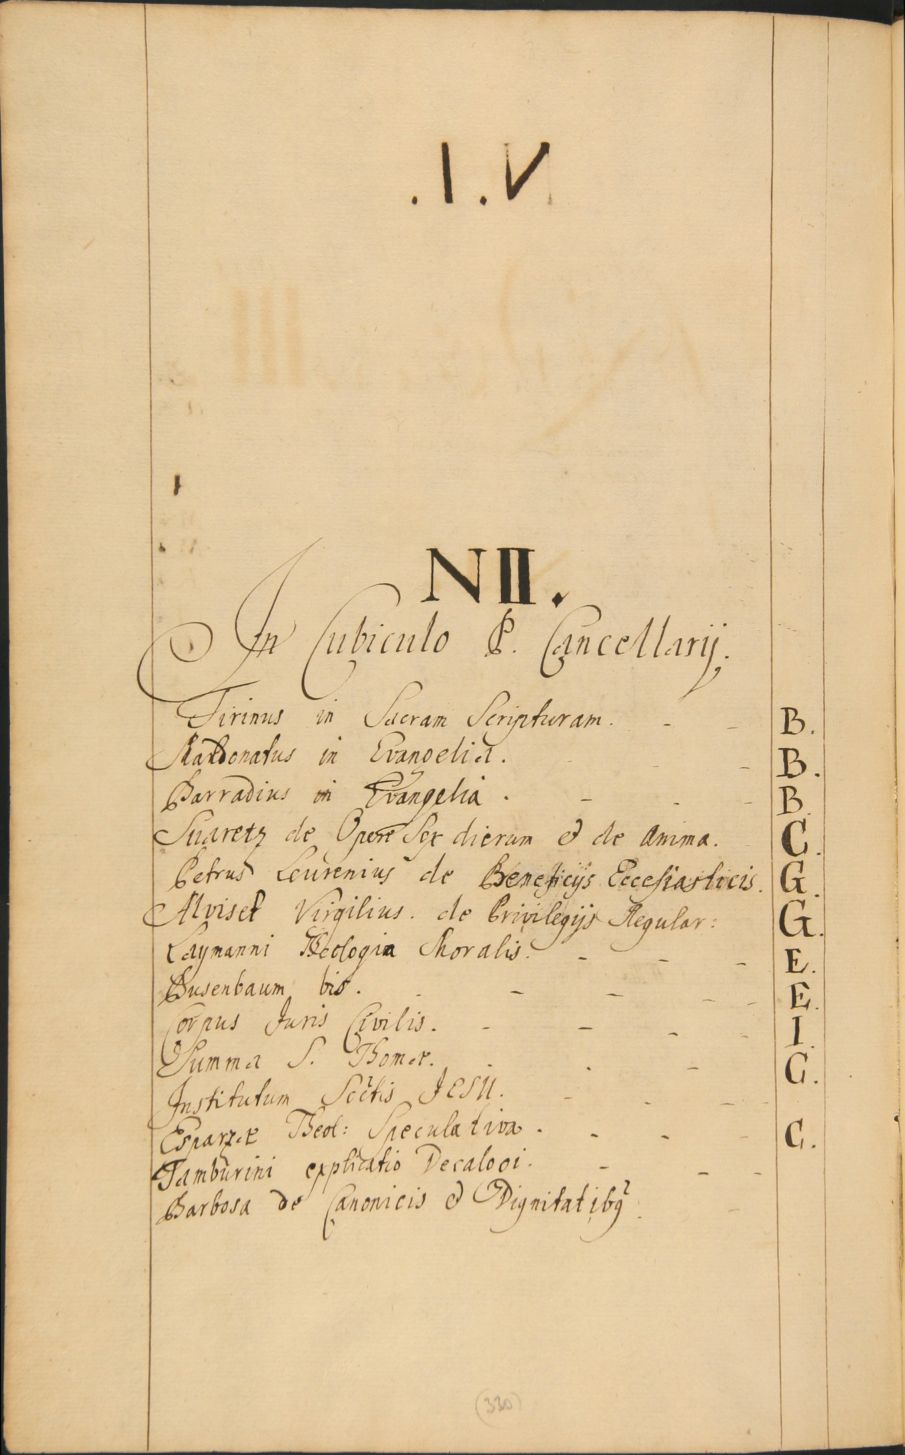 N II.
In Cubiculo P. Cancellarij.
Tirinus in Sacram Scripturam. - - B.
Maldonatus in Evangelia. - B.
Barradius in Evangelia. - - - B.
Suaretz de Opere Sex dierum & de Anima. C.
Petrus Leurenius de Beneficijs Ecclesiasticis. G.
Alviset Virgilius. de Privilegijs Regular: G.
Laymanni Theologia Moralis. - - - E.
Busenbaum bis. - - - - E.
Corpus Juris Civilis. - - - - I.
Summa S. Thomæ. - C.
Institutum Soctis JESU. - - -
Esparzæ Theol: Speculativa. - - - C.
Tamburini explicatio Decalogi. - - -
Barbosa de Canonicis & Dignitatibq
(330)